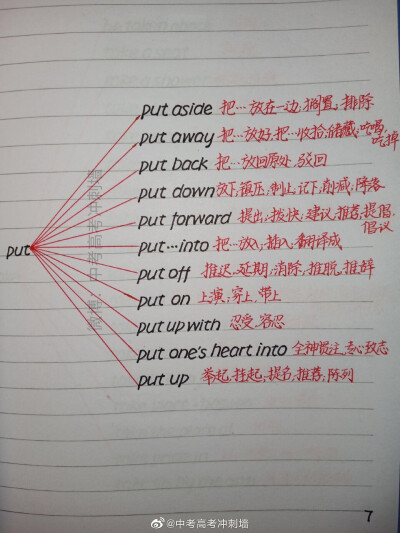 put aside 把…放在一边,搁置,排除
put away 把…放好,把…收拾,储藏,吃喝,吃掉
put back 把…放回原处,驳回
put down 放下,镇压,制止,记下,削减,降落
put forward 提出,拨快,建议,推荐,提倡,倡议
put
put…into 把…放入,插入,翻译成
put off 推迟,延期,消除,推脱,推辞
put on 上演,穿上,带上
put up with 忍受,容忍
put one's heart into 全神贯注,专心致志
put up 举起,挂起,提名,推荐,陈列
7
微博:中考高考冲刺墙
@中考高考冲刺墙